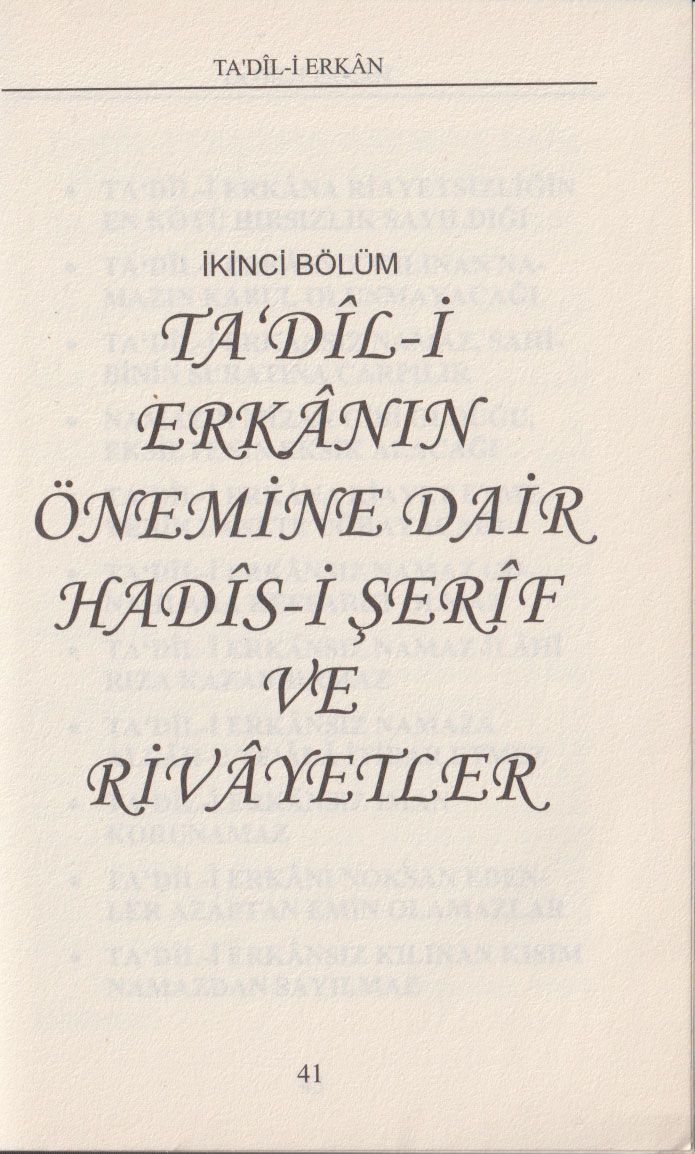 TA'DÎL-İ ERKÂN
İKİNCİ BÖLÜM
TA‘DÎL-İ
ERKÂNIN
ÖNEMİNE DAİR
HADÎS-İ ŞERÎF
VE
RİVÂYETLER
41